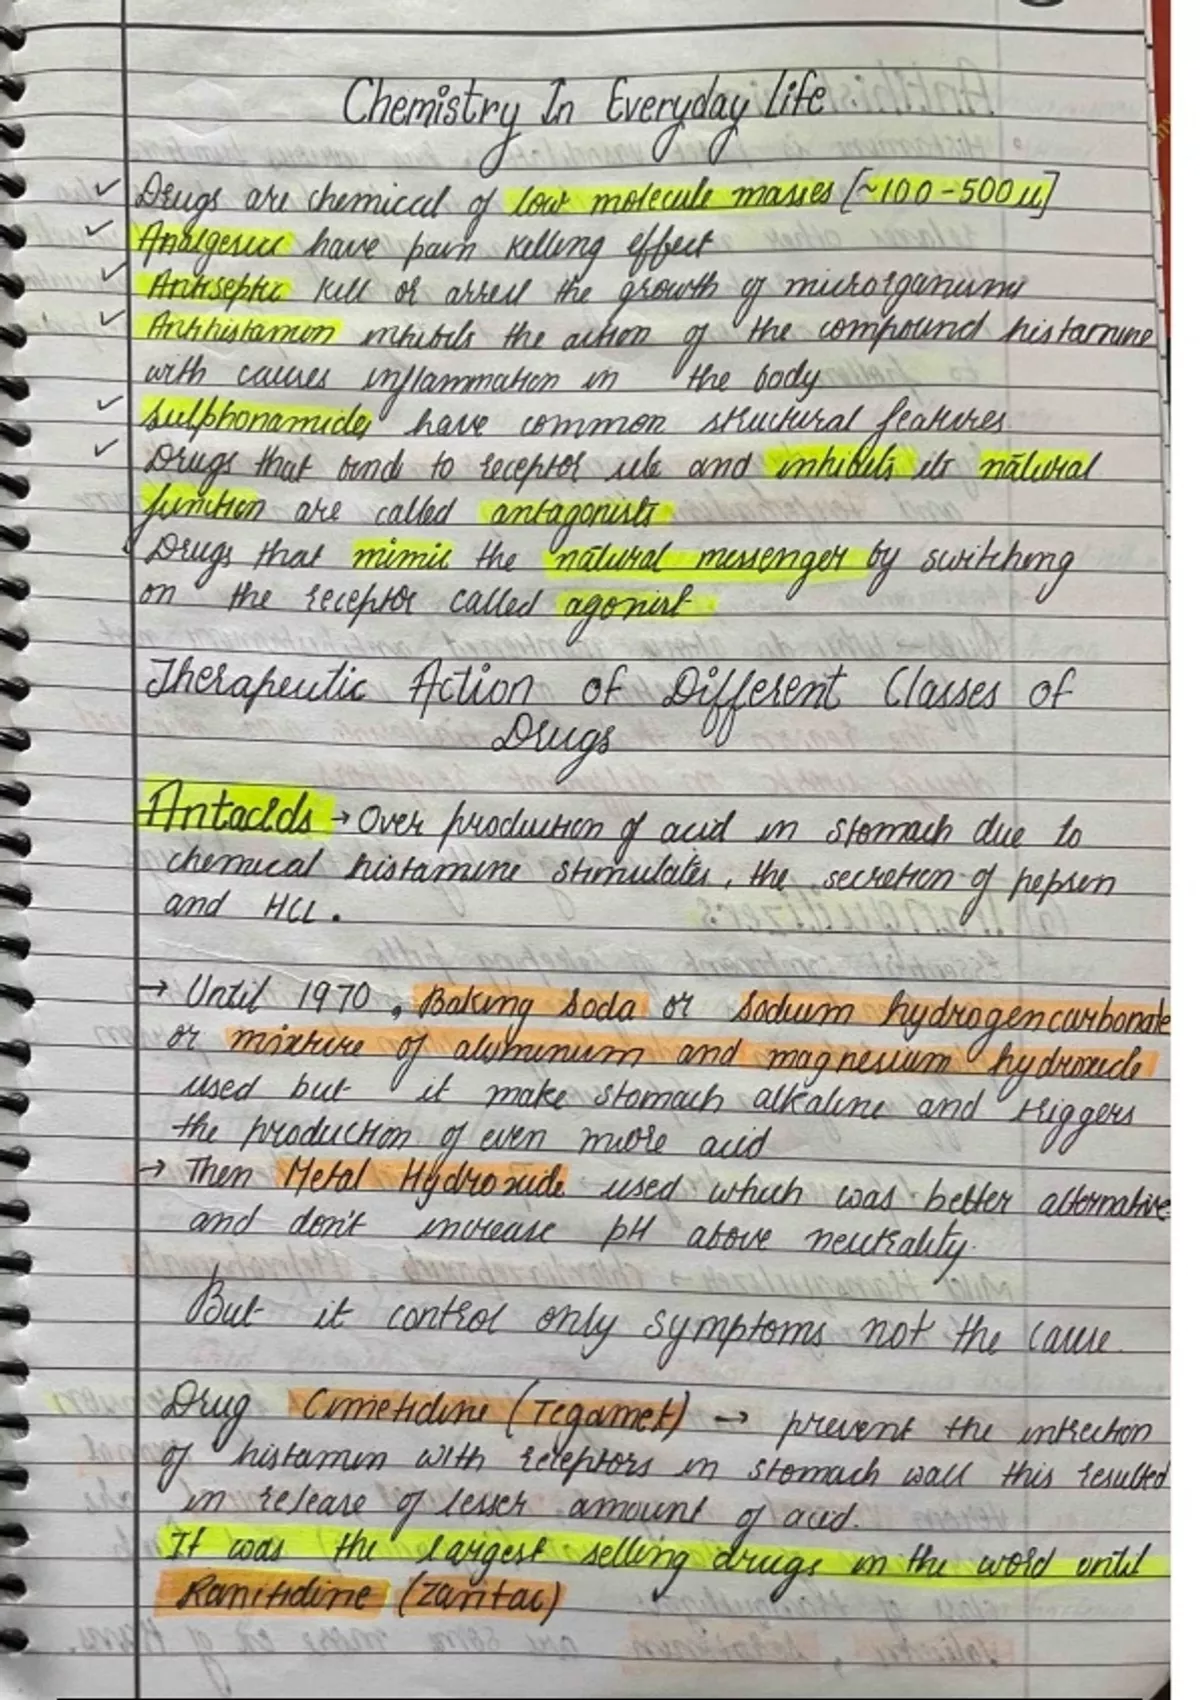 Chemistry In Everyday Life.
Drugs are chemical of low molecule masses [~100-500u]
Analgesic have pain killing effect
Antiseptic kill or arrest the growth of microrganisms
Antihistamon inhibits the action of the compound histamine
with causes inflammation in the body
Sulphonamides have common structural features.
Drugs that bind to receptor site and inhibits its natural
function are called antagonists
Drugs that mimic the natural messenger by switching
on the receptor called agonist
Therapeutic Action of Different Classes of
Drugs
Antacids → Over production of acid in stomach due to
chemical histamine stimulates, the secretion of pepsin
and HCL.
→ Until 1970, Baking Soda or Sodium hydrogencarbonate
or mixture of aluminum and magnesium hydroxide
used but it make stomach alkaline and triggers
the production of even more acid
→ Then Metal Hydroxide used which was better alternative
and don't increase pH above neutrality.
But it control only symptoms not the cause.
Drug Cimetidine (Tegamet) → prevent the intrection
of histamin with receptors in stomach wall this resulted
in release of lesser amount of acid.
It was the largest selling drugs in the word until
Ranitidine (Zantac)